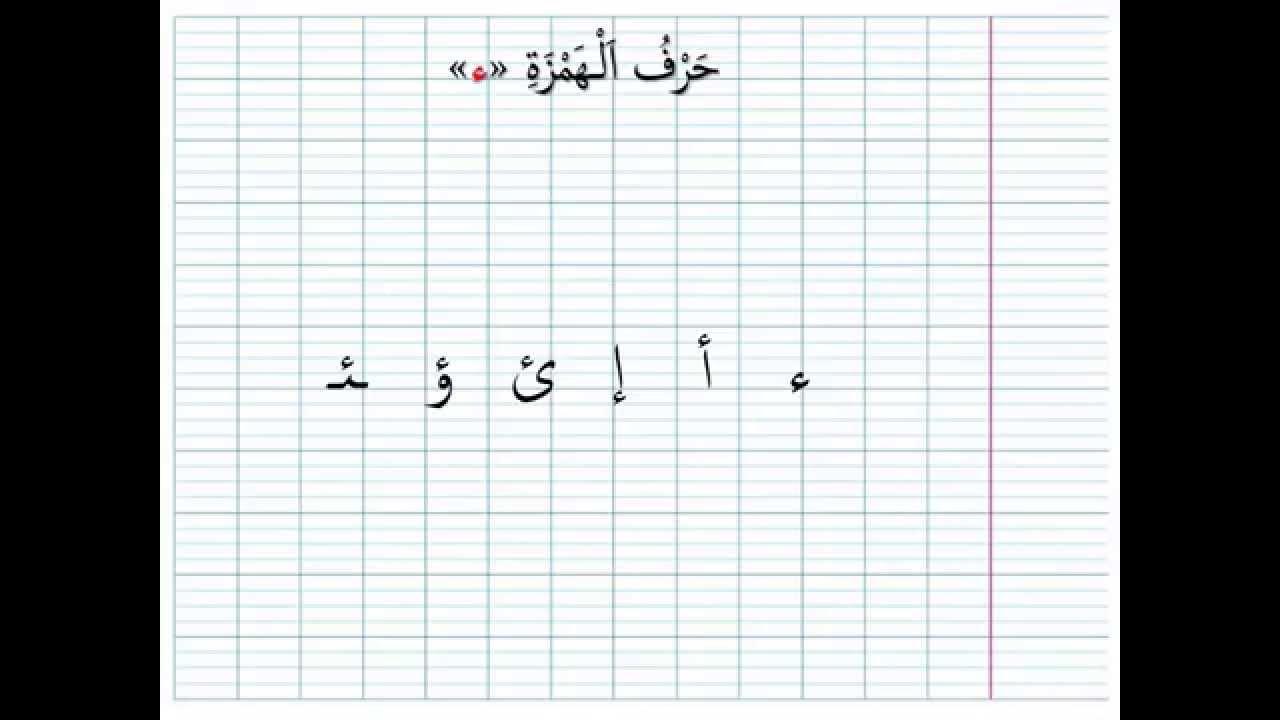 حَرْفُ اَلْهَمْزَةِ «ء»
ء أ إ ئ ؤ ـئـ